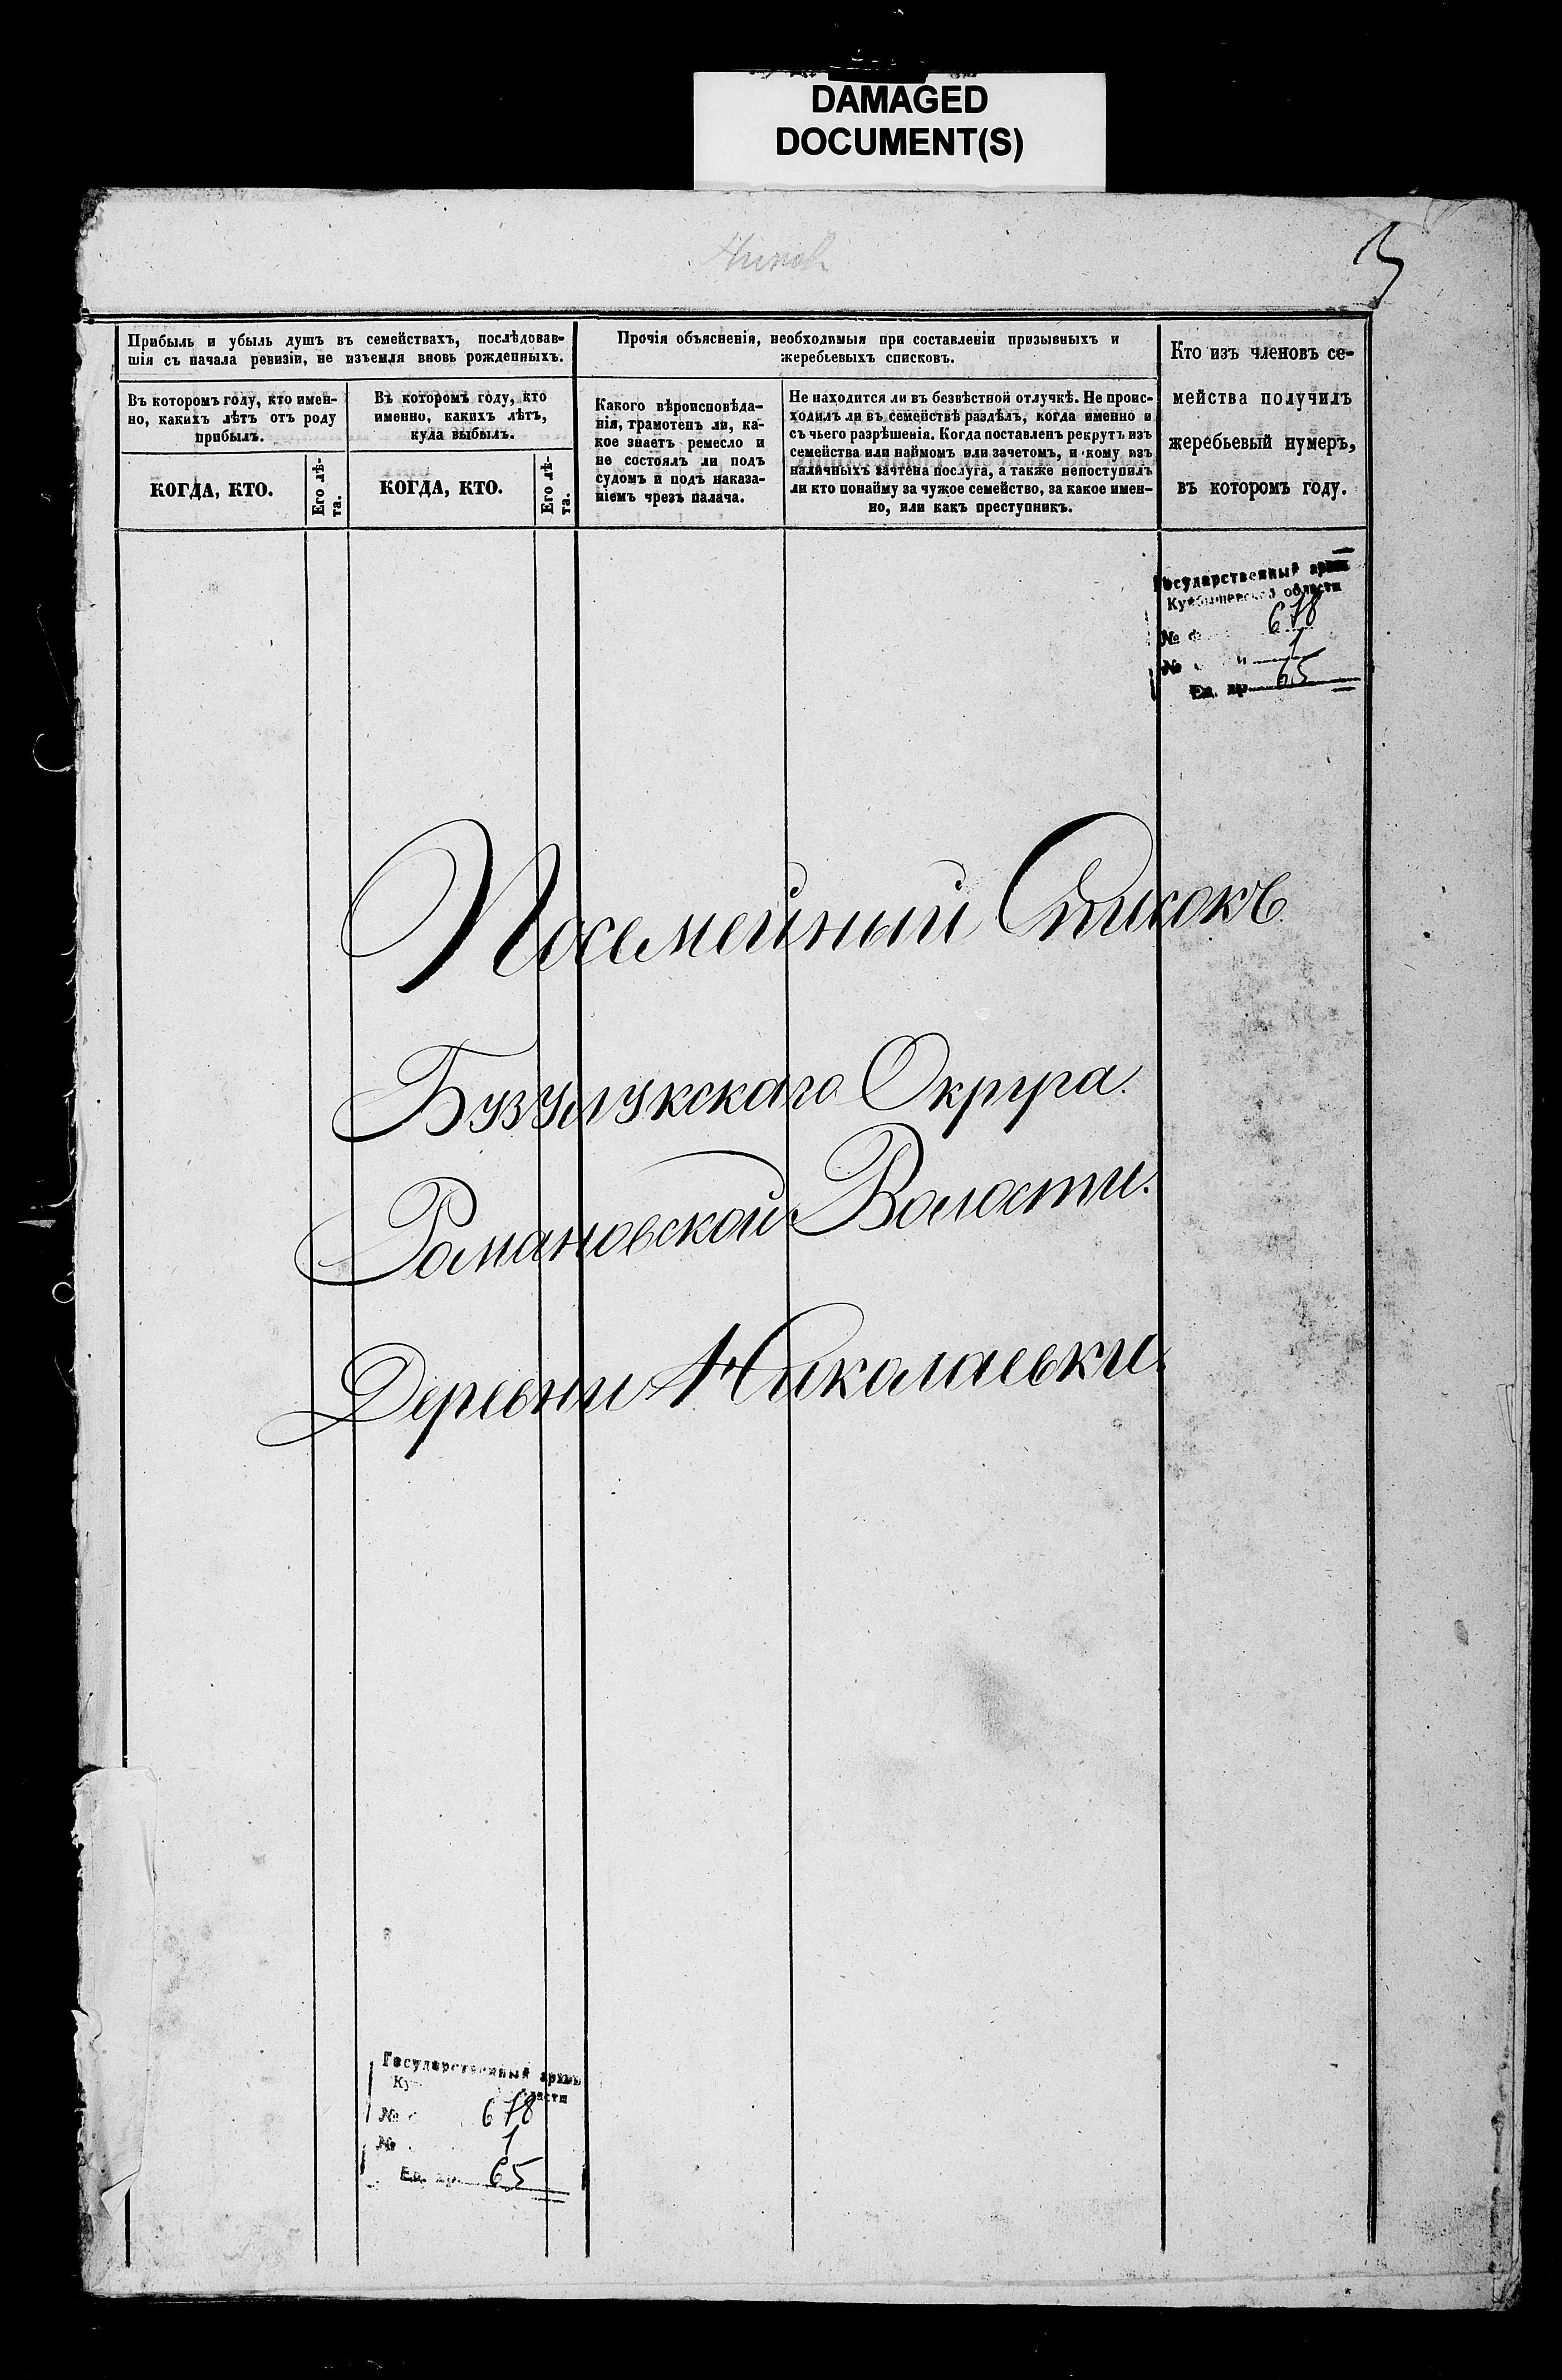 DAMAGED
DOCUMENT(S)
Прибыль и убыль душъ въ семействахъ, послѣдовав-
шія съ начала ревизіи, не изъемля вновь рожденныхъ.
Прочія объясненія, необходимыя при составленіи призывныхъ и
жеребьевыхъ списковъ.
Кто изъ членовъ се-
мейства получилъ
жеребьевый нумеръ,
въ которомъ году.
Въ которомъ году, кто имен-
но, какихъ лѣтъ отъ роду
прибылъ.
Въ которомъ году, кто
именно, какихъ лѣтъ,
куда выбылъ.
Какого вѣроисповѣда-
нія, трамотенъ ли, ка-
кое знаетъ ремесло и
не состоялъ ли подъ
судомъ и подъ наказа-
ніемъ чрезъ палача.
Не находится ли въ безвѣстной отлучкѣ. Не проис-
ходилъ ли въ семействѣ раздѣлъ, когда именно и
съ чьего разрѣшенія. Когда поставленъ рекрутъ изъ
семейства или наймомъ или зачетомъ, и кому изъ
наличныхъ зачтена послуга, а также непоступилъ
ли кто понайму за чужое семейство, за какое имен-
но, или какъ преступникъ.
КОГДА, КТО.
Его лѣ-
та.
КОГДА, КТО.
Его лѣ-
та.
Государственный архив
Куйбышевской области
№ 678
№ 1
Ед. хр. 65
Посемейный Списокъ
Бузулукскаго Округа.
Романовской Волости.
Деревни Николаевки.
Государственный архив
области
№ 678
№ 1
Ед. хр. 65